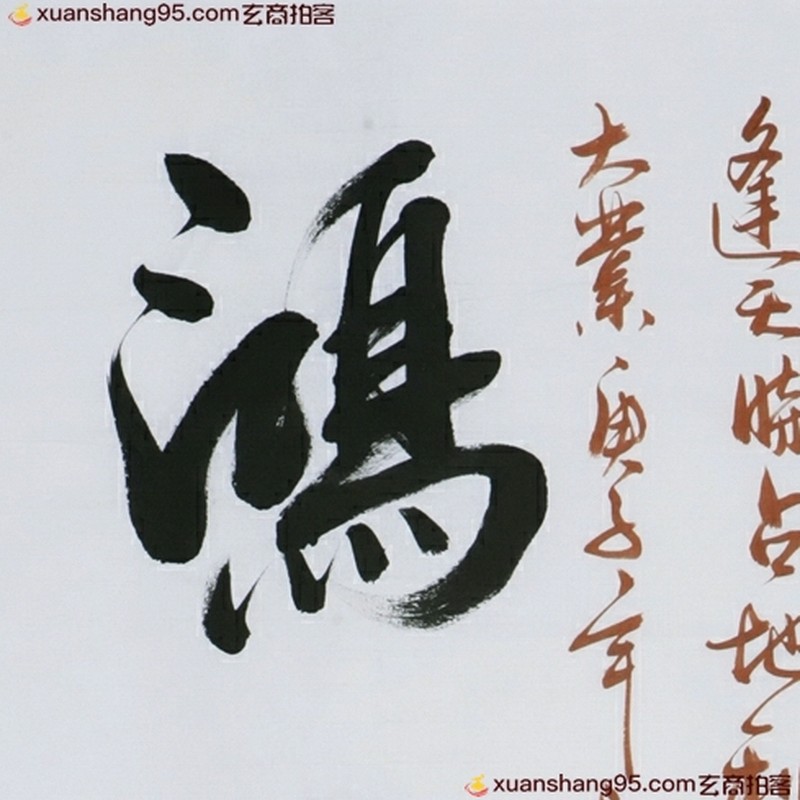 xuanshang95.com玄商拍客
逢天時占地利
大業庚子年
鴻
xuanshang95.com玄商拍客